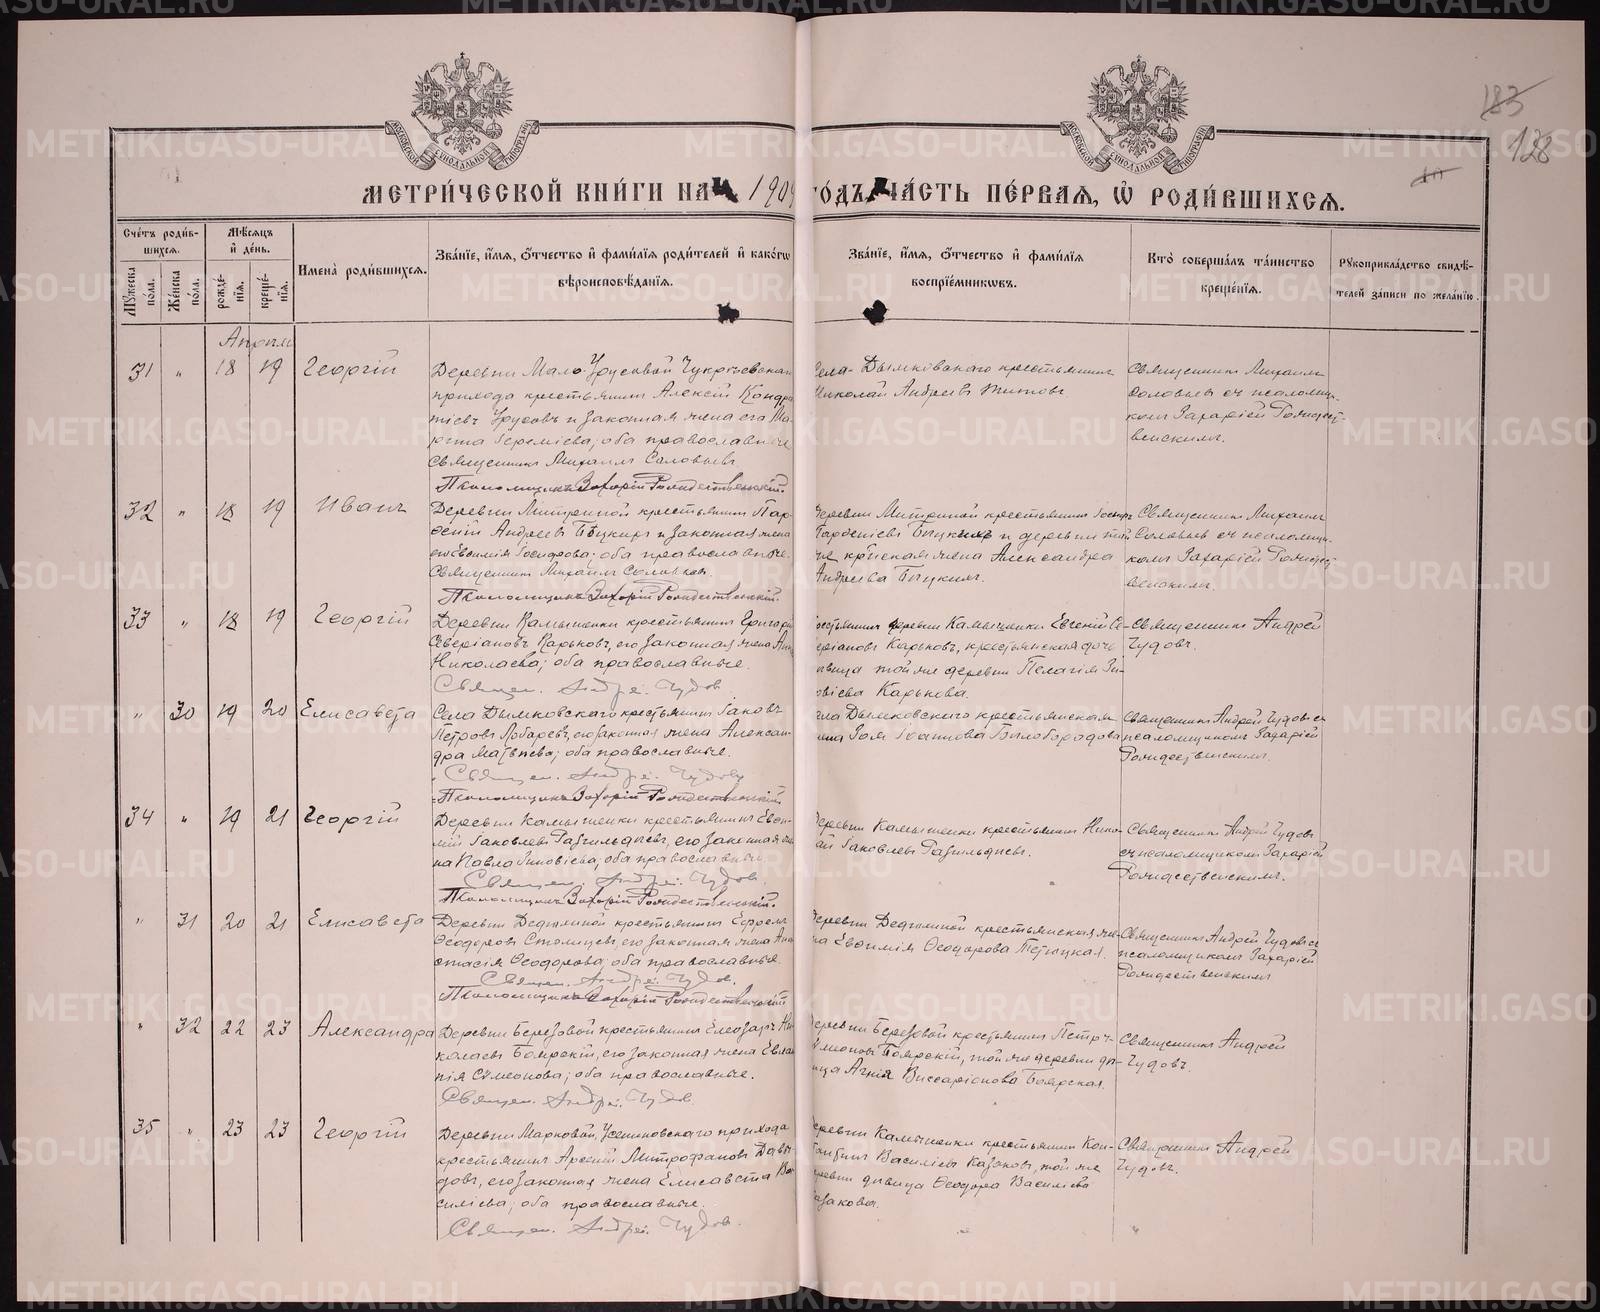 183
128
МЕТРИ́ЧЕСКОЙ КНИ́ГИ НА 190
ГО́ДЪ ЧА́СТЬ ПЕ́РВАЯ, Ѡ РОДИ́ВШИХСЯ.
Сче́тъ роди́в-
шихся.
Му́жеска по́ла.
Же́нска по́ла.
Мѣ́сяцъ и де́нь.
рожде́нія.
креще́нія.
Имена̀ роди́вшихся.
Зва́ніе, и́мя, ѻ́тчество и фами́лія роди́телей и како́гѡ
вѣроисповѣ́данія.
Зва́ніе, и́мя, ѻ́тчество и фами́лія
воспріе́мникѡвъ.
Кто̀ соверша́лъ та́инство
креще́нія.
Рукоприкла́дство свидѣ́-
телей за́писи по жела́нію.
Апрѣль
31 " 18 19 Георгій
Деревни Мало-Трусовой
прихода крестьянинъ Алексій Кондра
тіевъ Трусовъ и законная жена его Ма
Іереміева; оба православные
Священникъ Михаилъ Соловьевъ
Псаломщикъ Захарій Рождественскій.
села Дымковскаго крестьянинъ
Николай Андреевъ Титовъ.
Священникъ Михаилъ
Соловьевъ съ псаломщи-
комъ Захаріей Рождест-
венскимъ.
32 " 18 19 Иванъ
Деревни Митриной крестьянинъ Пар
ѳеній Андреевъ и законная жена
его Евѳимія оба православные.
Священникъ Михаилъ Соловьевъ.
Псаломщикъ Захарій Рождественскій.
Деревни Митриной крестьянинъ
Парѳеніевъ и деревни той
же жена Александра
Андреева
Священникъ Михаилъ
Соловьевъ съ псаломщи-
комъ Захаріей Рождест
венскимъ.
33 " 18 19 Георгій
Деревни Камышенки крестьянинъ Григорій
Северіановъ Карьковъ, его законная жена Анна
Николаева; оба православные.
Священ. Андрей Чудов
крестьянинъ деревни Камышенки Евгеній Се-
веріановъ Карьковъ, крестьянская дочь
дѣвица той же деревни Пелагія Зи-
новіева Карькова.
Священникъ Андрей
Чудовъ.
" 30 19 20 Елисавета
Села Дымковскаго крестьянинъ Іаковъ
Петровъ его законная жена Алексан
дра Матвѣева; оба православные.
Священ. Андрей Чудовъ
Псаломщикъ Захарій Рождественскій
села Дымковскаго крестьянская
жена Зоя Іоаннова Бѣлобородова
Священникъ Андрей Чудовъ съ
псаломщикомъ Захаріей
Рождественскимъ.
34 " 19 21 Георгій
Деревни Камышенки крестьянинъ Евѳи-
мій Іаковлевъ его законная же
на Павла Зиновіева; оба православные
Священ. Андрей. Чудов.
Псаломщикъ Захарій Рождественскій.
Деревни Камышенки крестьянинъ Нико-
лай Іаковлевъ
Священникъ Андрей Чудовъ
съ псаломщикомъ Захаріей
Рождественскимъ.
" 31 20 21 Елисавета
Деревни Дедюхиной крестьянинъ Ефремъ
Ѳеодоровъ его законная жена Ана
стасія Ѳеодорова; оба православные.
Священ. Андрей. Чудов.
Псаломщикъ Захарій Рождественскій
Деревни Дедюхиной крестьянская же-
на Евѳимія Ѳеодорова
Священникъ Андрей Чудовъ съ
псаломщикомъ Захаріей
Рождественскимъ
" 32 22 23 Александра
Деревни Березовой крестьянинъ Елеазаръ Ни
колаевъ Боярскій, его законная жена Евлам
пія Сѵмеонова; оба православные.
Священ. Андрей. Чудов.
Деревни Березовой крестьянинъ Петръ
Сѵмеоновъ Боярскій, той же деревни дѣ-
вица Агнія Виссаріонова Боярская.
Священникъ Андрей
Чудовъ.
35 " 23 23 Георгій
Деревни Марковой, прихода
крестьянинъ Арсеній Митрофановъ Давы
довъ, его законная жена Елисавета Ва
силіева; оба православные.
Священ. Андрей. Чудов.
Деревни Камышенки крестьянинъ Кон-
Василіевъ Казаковъ, той же
деревни дѣвица Ѳеодора Василіева
Казакова.
Священникъ Андрей
Чудовъ.
METRIKI.GASO-URAL.RU